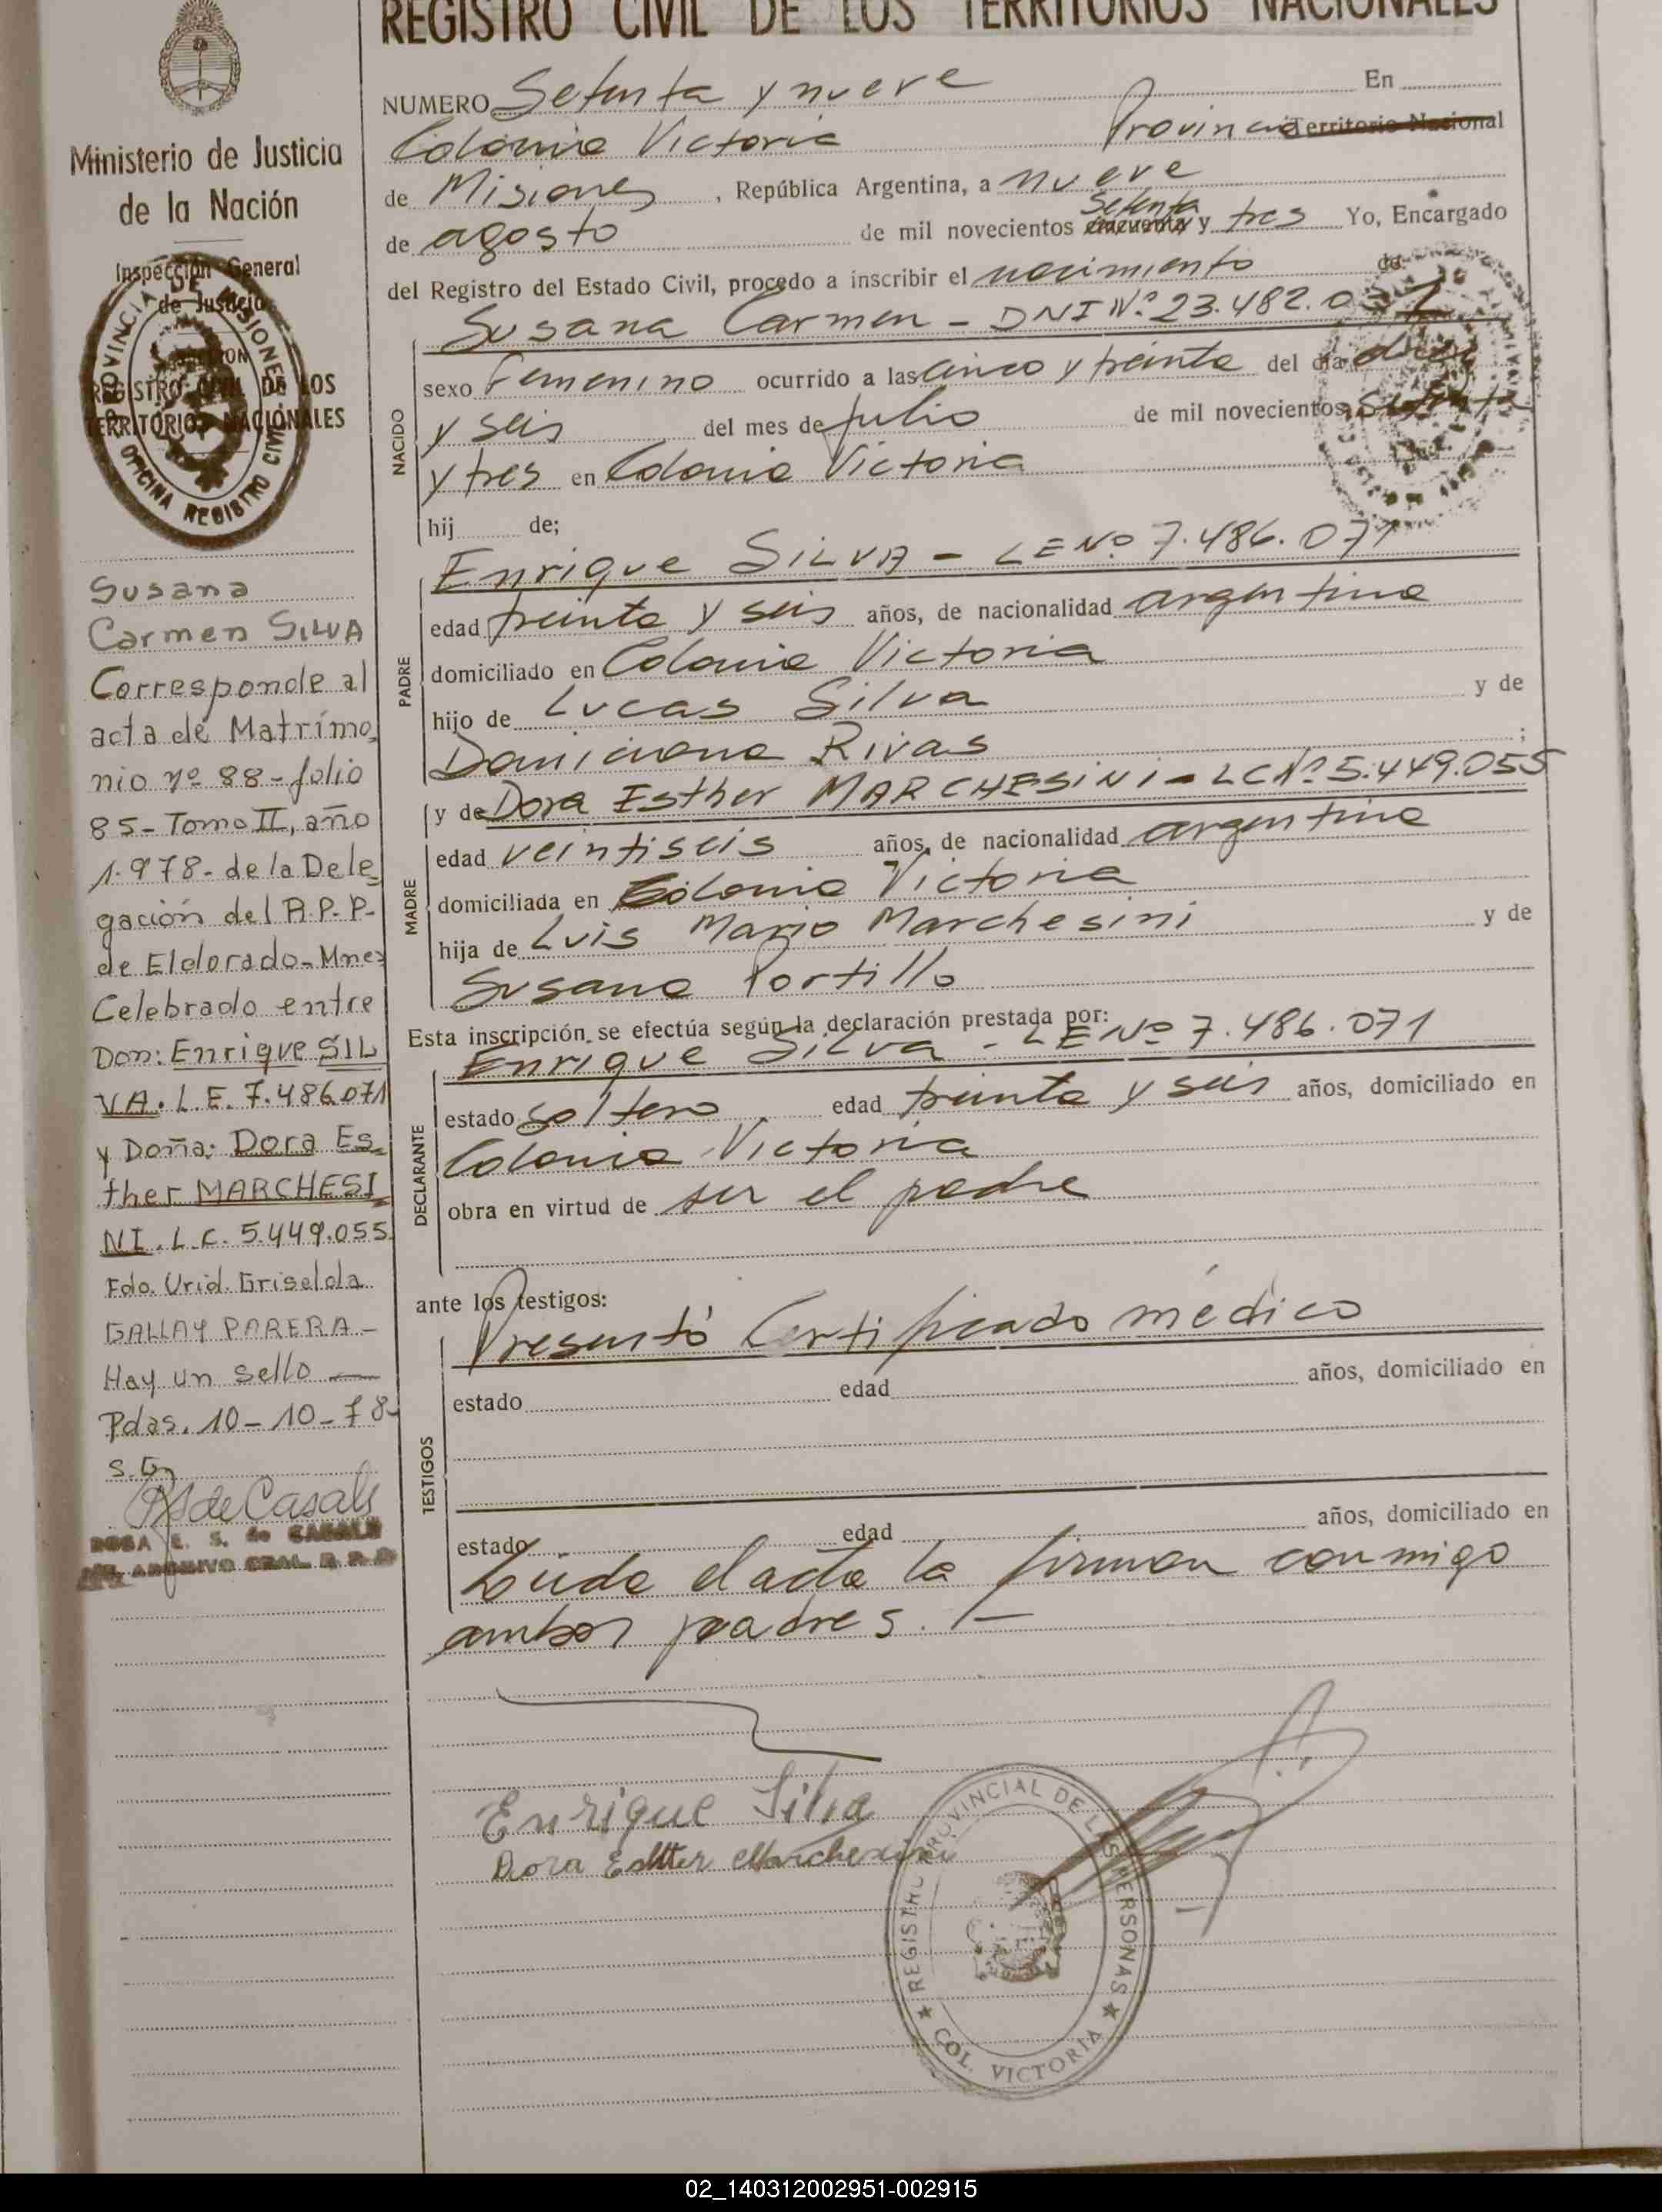 REGISTRO CIVIL DE LOS TERRITORIOS NACIONALES
Ministerio de Justicia
de la Nación
Inspección General
de Justicia
REGISTRO CIVIL DE LOS
TERRITORIOS NACIONALES
PROVINCIA DE MISIONES
OFICINA REGISTRO CIVIL
Susana
Carmen SILVA
Corresponde al
acta de Matrimo
nio nº 88 - folio
85 - Tomo II, año
1.978 - de la Dele
gación del R.P.P.
de Eldorado - Mnes
Celebrado entre
Don: Enrique SIL
VA. L.E. 7.486.071
y Doña: Dora Es
ther MARCHESI
NI. L.C. 5.449.055
Fdo. Urid. Griselda
GALLAY PARERA -
Hay un sello —
Pdas. 10-10-78-
S.G.
RS de Casals
ROSA E. S. de CASALS
ARCHIVO GRAL. R. P. P.
NUMERO Setenta y nueve En
Colonia Victoria Provincia Territorio Nacional
de Misiones , República Argentina, a nueve
de agosto de mil novecientos cincuenta Setenta y tres Yo, Encargado
del Registro del Estado Civil, procedo a inscribir el nacimiento de
Susana Carmen - DNI Nº 23.482.0
NACIDO
sexo Femenino ocurrido a las cinco y treinta del día diez
y seis del mes de julio de mil novecientos setenta
y tres en Colonia Victoria
hij de;
PADRE
Enrique SILVA - LE Nº 7.486.071
edad treinta y seis años, de nacionalidad argentina
domiciliado en Colonia Victoria
hijo de Lucas Silva y de
Damiciana Rivas ;
MADRE
y de Dora Esther MARCHESINI - LC Nº 5.449.055
edad veintiseis años, de nacionalidad argentina
domiciliada en Colonia Victoria
hija de Luis Mario Marchesini y de
Susana Portillo
Esta inscripción se efectúa según la declaración prestada por:
DECLARANTE
Enrique Silva - LE Nº 7.486.071
estado soltero edad treinta y seis años, domiciliado en
Colonia Victoria
obra en virtud de ser el padre
ante los testigos:
TESTIGOS
Presentó Certificado médico
estado edad años, domiciliado en
estado edad años, domiciliado en
Leída el acta la firman conmigo
ambos padres. -
Enrique Silva
Dora Esther Marchesini
REGISTRO PROVINCIAL DE LAS PERSONAS
COL. VICTORIA
02_140312002951-002915